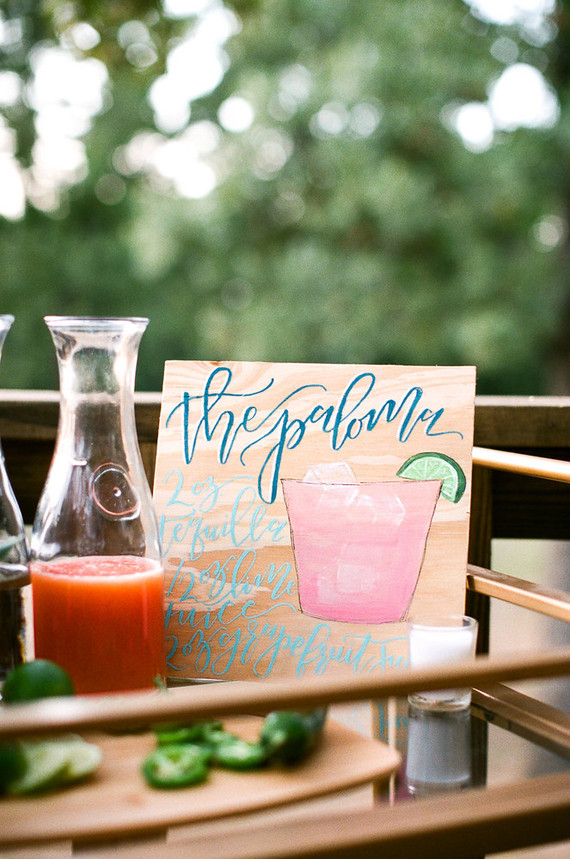 the paloma
2 oz
tequilla
1/2 oz lime
juice
2 oz grapefruit